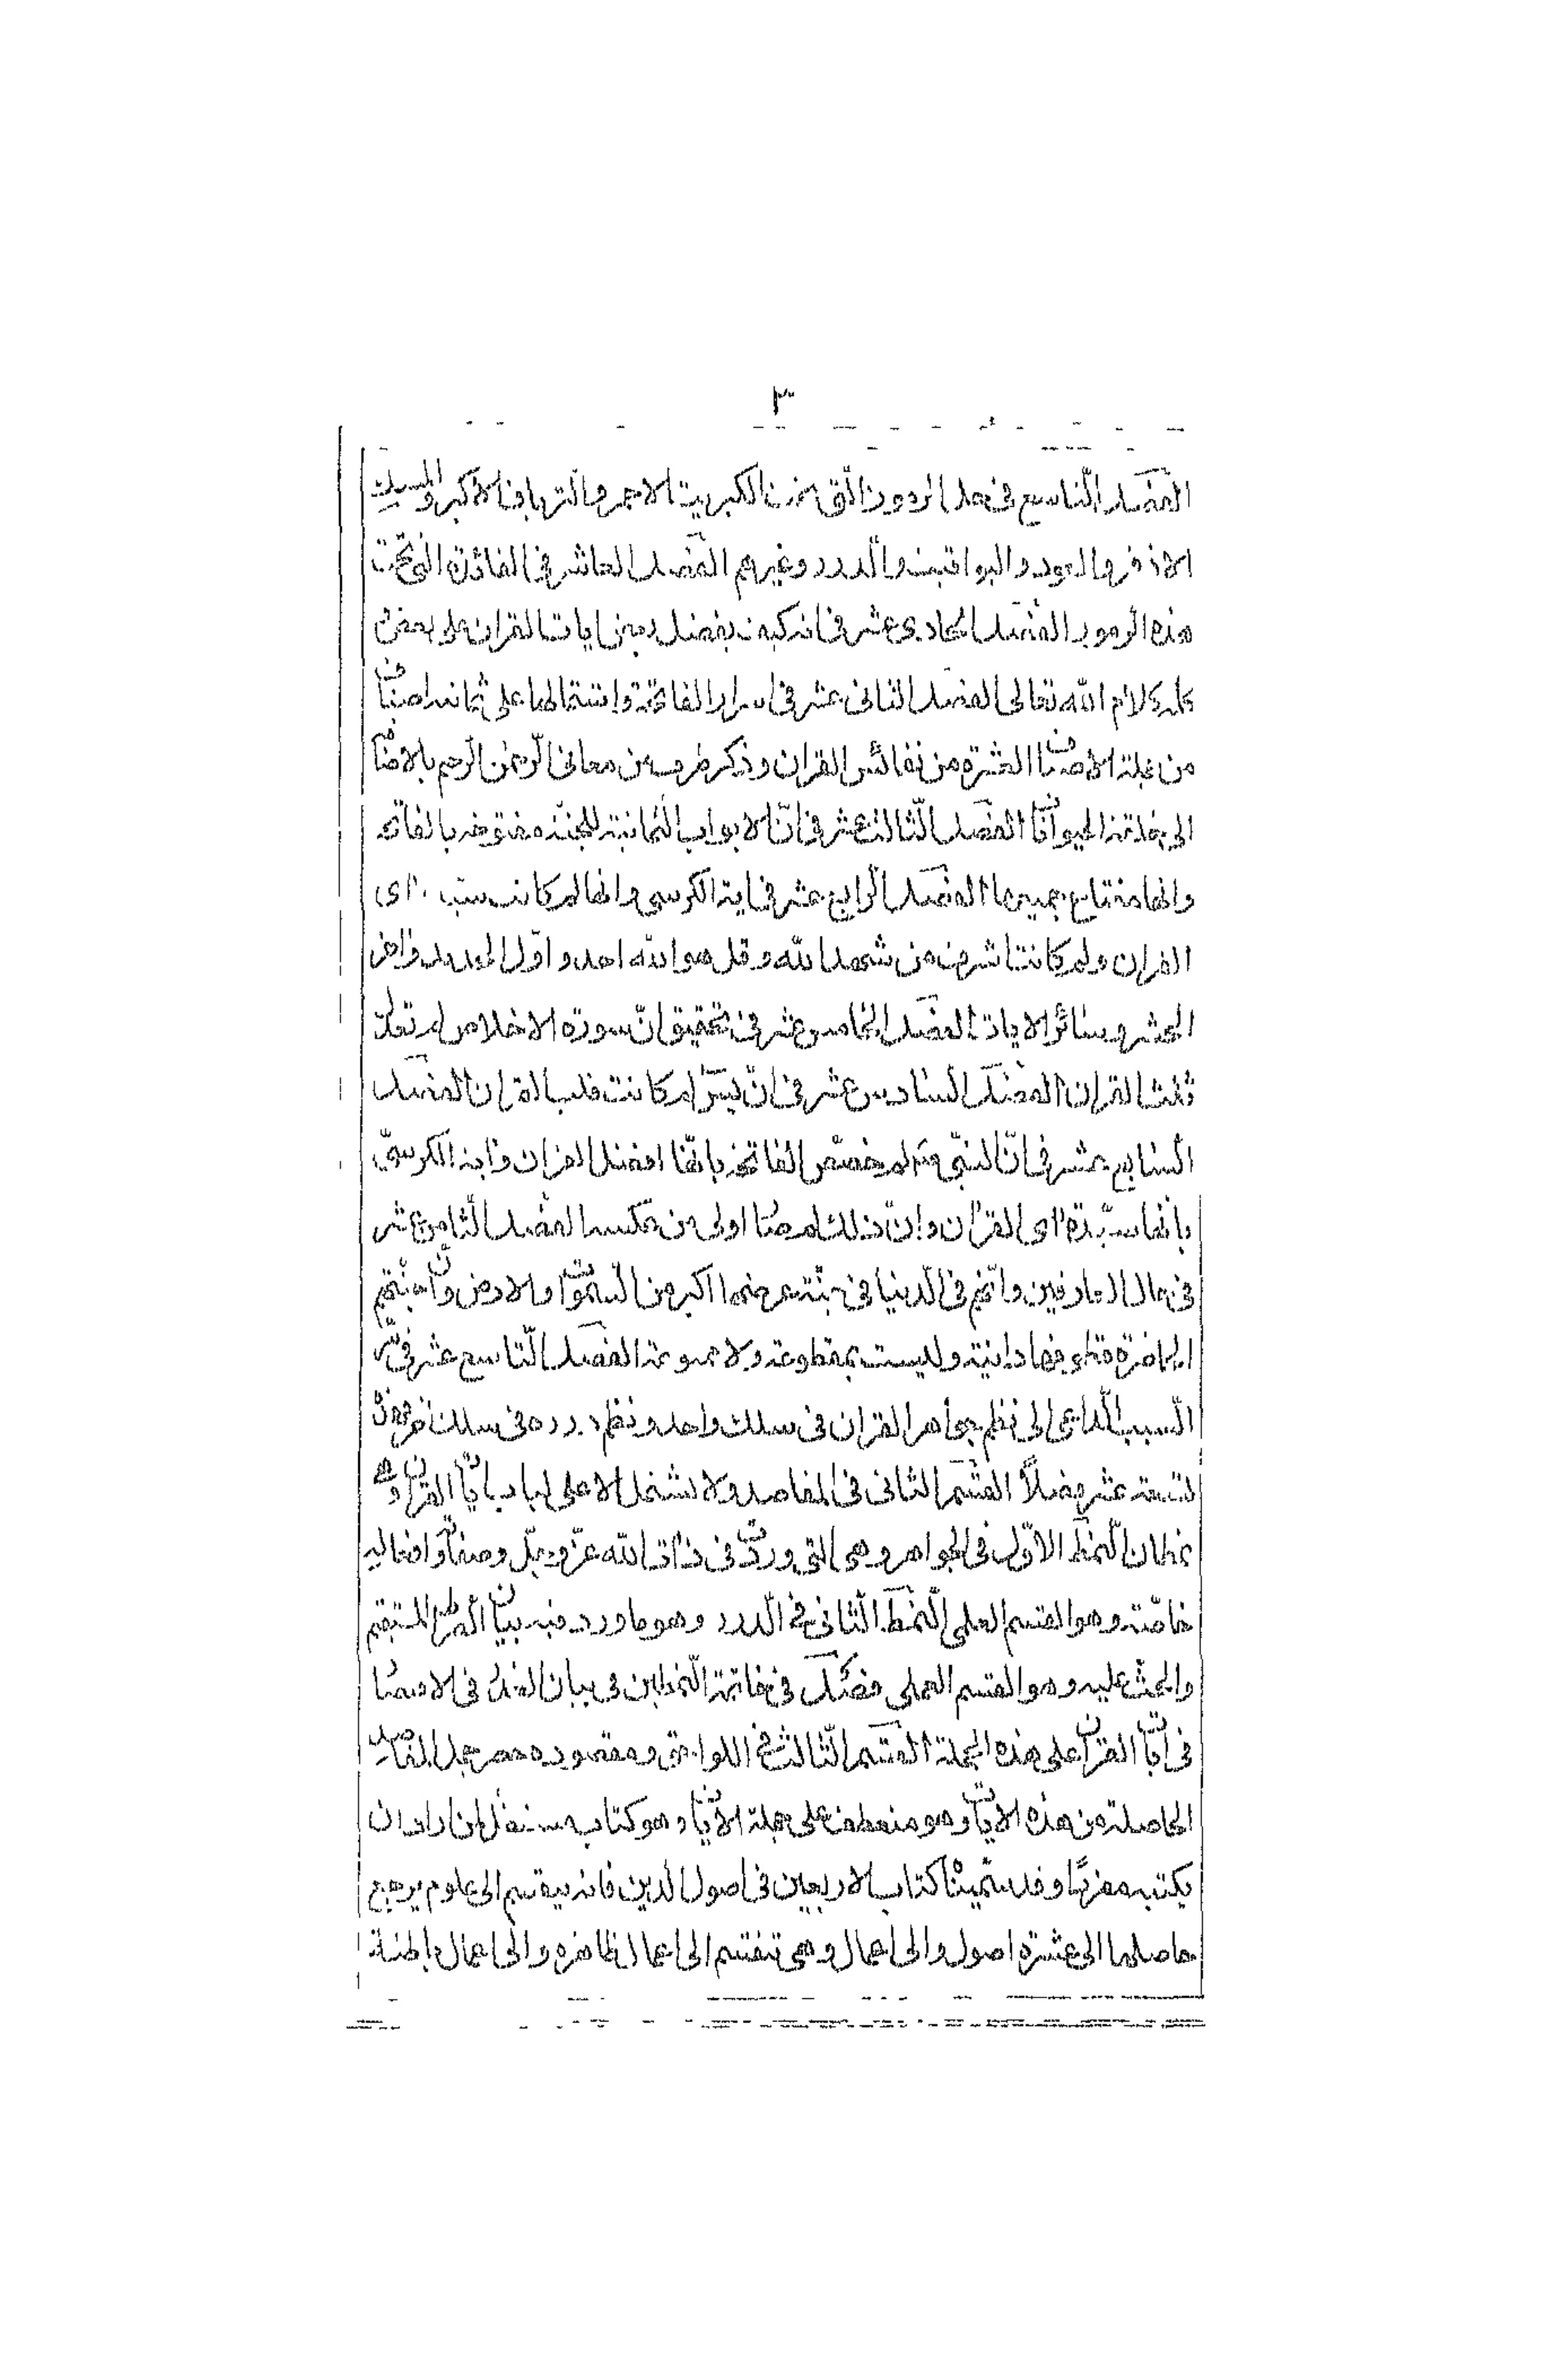 ٣
الفصل التاسع فى حل الرموز التى تحت الكبريت الاحمر والترياق الاكبر والمسك
الاذفر والعود واليواقيت والدرر وغيرهم الفصل العاشر فى الفائدة التى تحت
هذه الرموز الفصل الحادى عشر فى انه كيف يفضل بعض ايات القران على بعض
كله كلام الله تعالى الفصل الثانى عشر فى اسرار الفاتحة واشتمالها على ثمانيه اصناف
من جملة الاصناف العشرة من نفائس القران وذكر طرف من معانى الرحمن الرحيم بالاضا
الى خلقة الحيوانات الفصل الثالث عشر فى ان الابواب الثمانية للجنة مفتوحه بالفاتحه
وانها مفتاح جميعها الفصل الرابع عشر فى اية الكرسى وانها لم كانت سيدة اى
القران ولم كانت اشرف من شهد الله وقل هو الله احد واول الحديد واخر
الحشر وسائر الايات الفصل الخامس عشر فى تحقيق ان سورة الاخلاص لم تعدل
ثلث القران الفصل السادس عشر فى ان يس لم كانت قلب القران الفصل
السابع عشر فى ان النبى ص لم خصص الفاتحة بانها افضل القران واية الكرسى
بانها سيدة اى القران وان ذلك لم صار اولى من عكسه الفصل الثامن عشر
فى حال العارفين وانهم فى الدنيا فى جنة عرضها اكبر من السموات والارض وان جنتهم
الحاضرة قطوفها دانية وليست بمقطوعة ولا ممنوعة الفصل التاسع عشر فى سر
السبب الداعى الى نظم جواهر القران فى سلك واحد ونظم درره فى سلك اخر فهذه
لتسعة عشر فصلاً القسم الثانى فى المقاصد ولا يشتمل الا على لباب ايات القران وهى
نمطان النمط الاول فى الجواهر وهى التى وردت فى ذات الله عز وجل وصفاته وافعاله
خاصة وهو القسم العلمى النمط الثانى فى الدرر وهو ما ورد فيه بيان الصراط المستقيم
والحث عليه وهو القسم العملى فصل فى خاتمة النمطين فى بيان العذر فى الاقتصار
فى ايات القران على هذه الجملة القسم الثالث فى اللواحق ومقصوده حصر جمل المقاصد
الحاصلة من هذه الايات وهو منعطف على جملة الايات وهو كتاب مستقل لمن اراد ان
يكتبه مفردًا وقد سميناه كتاب الاربعين فى اصول الدين فانه ينقسم الى علوم يرجع
حاصلها الى عشرة اصول والى اعمال وهى تنقسم الى اعمال ظاهره والى اعمال باطنة